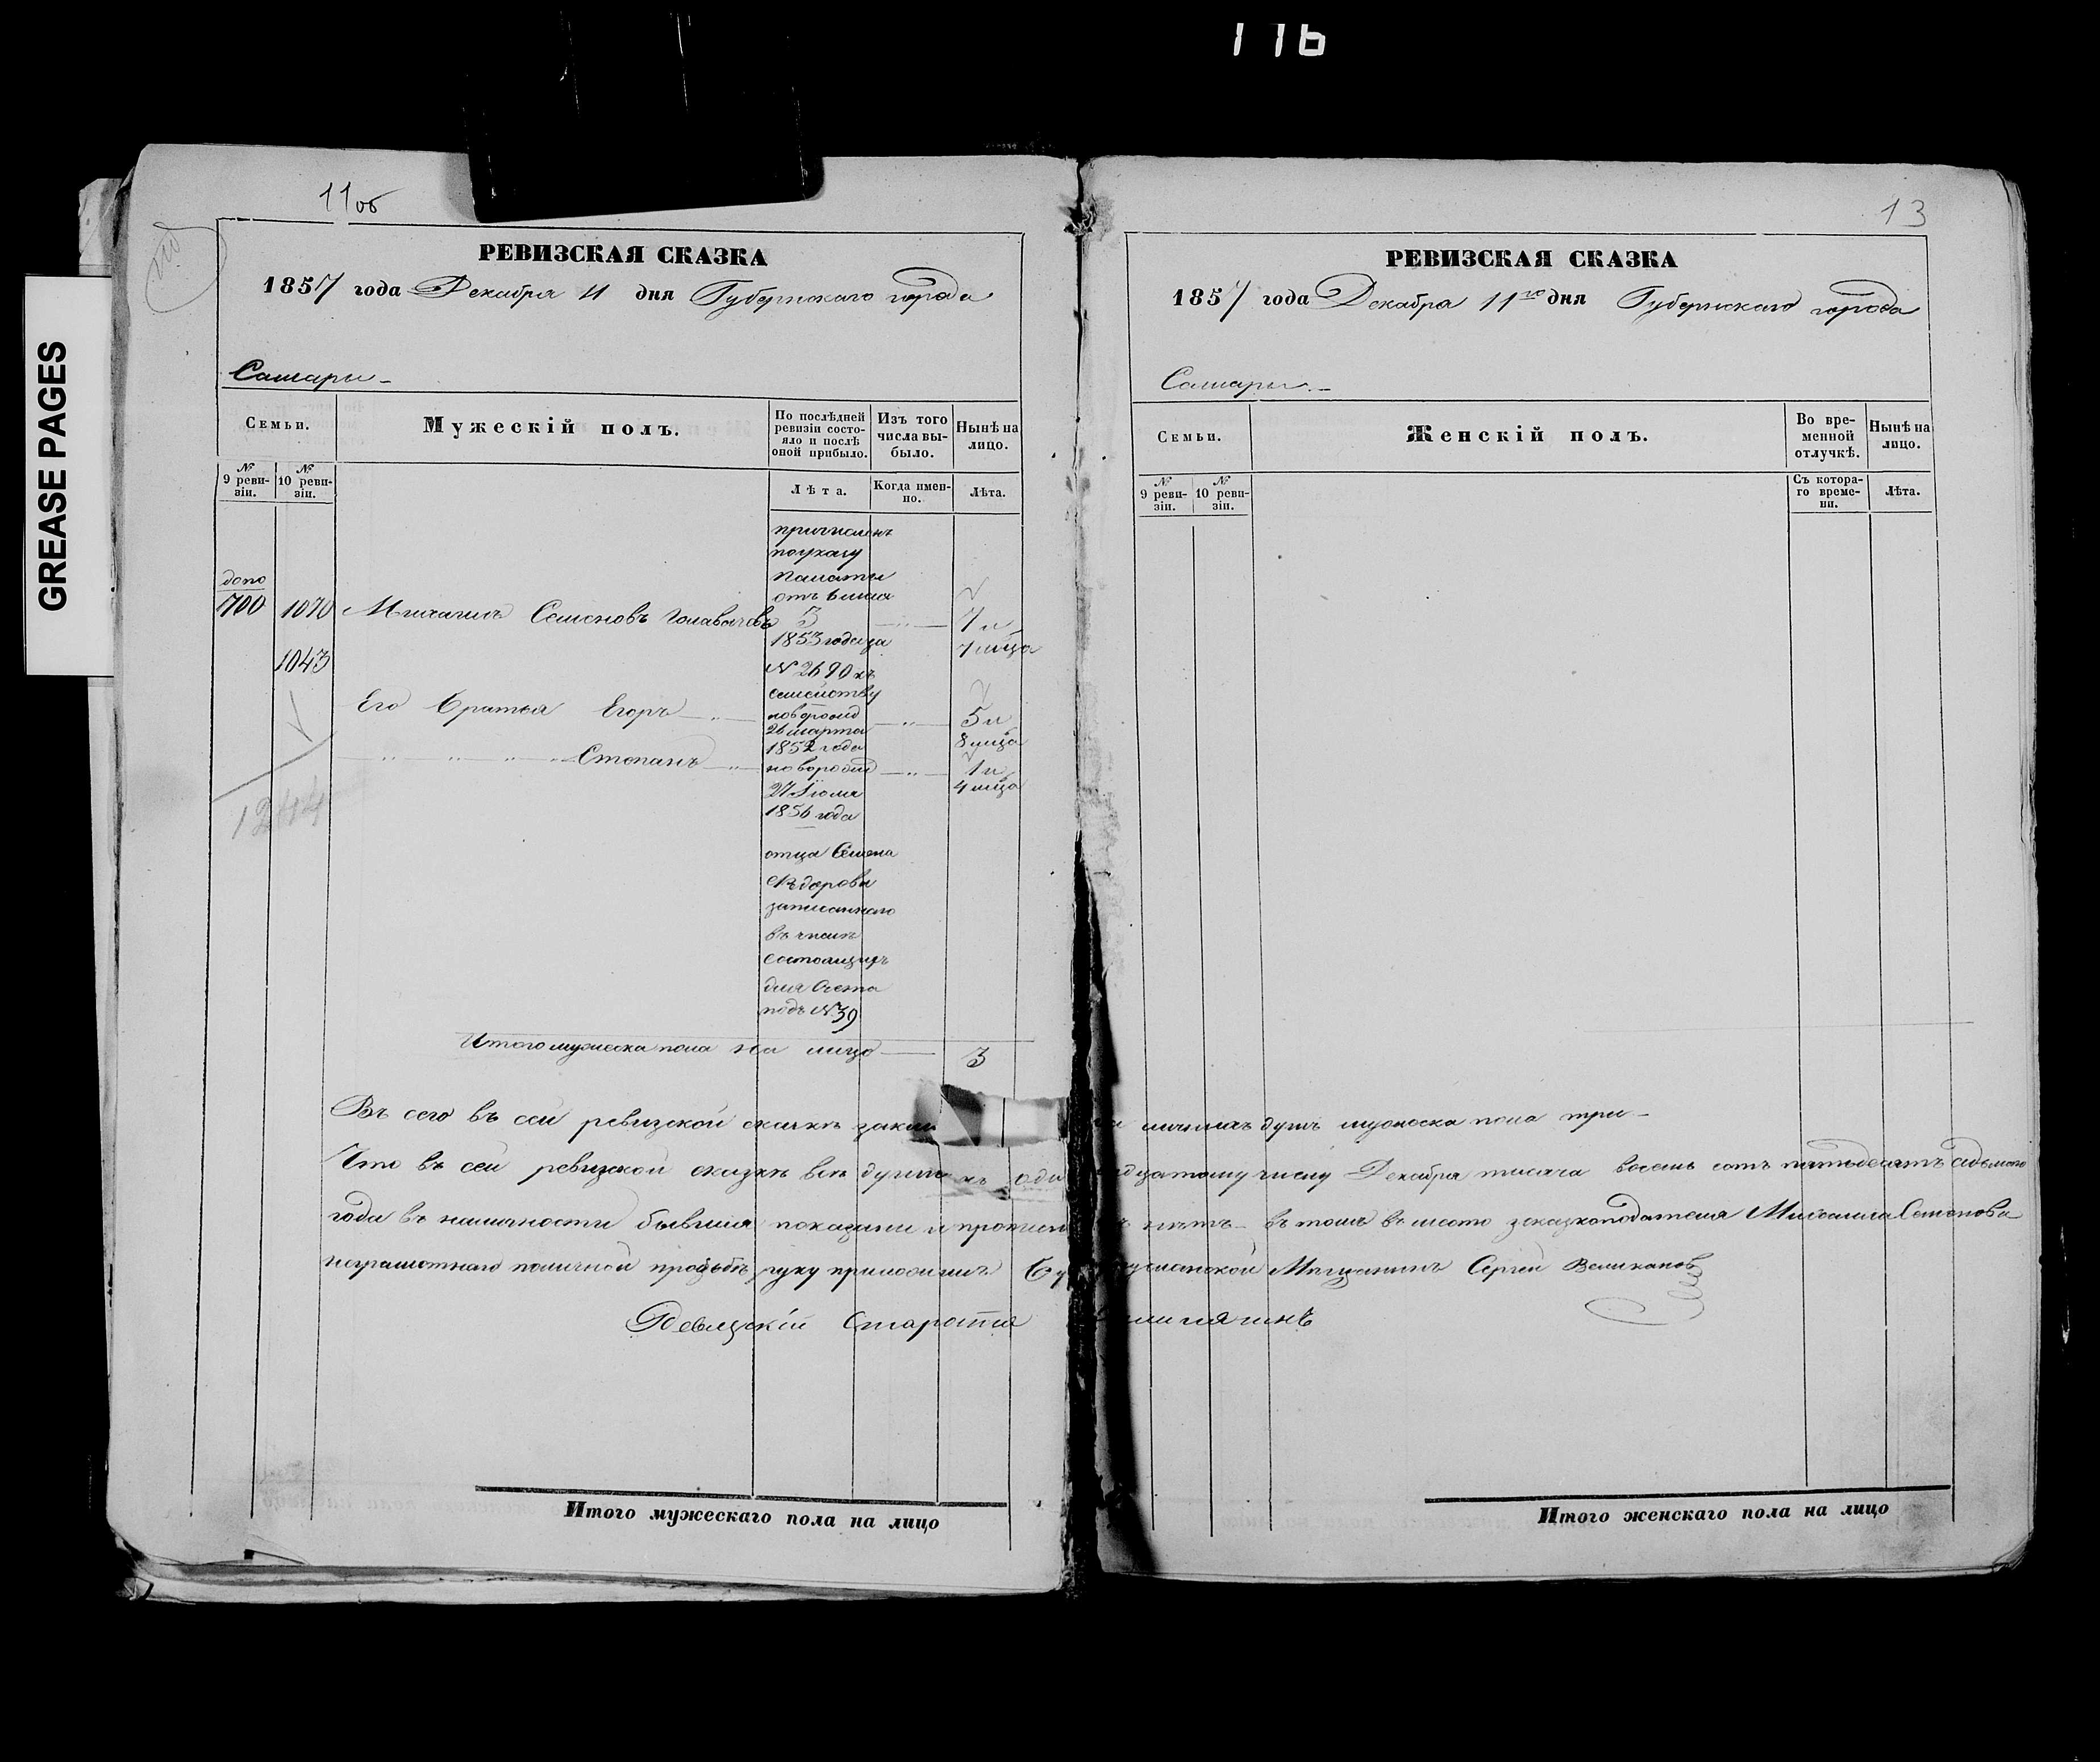 116
GREASE PAGES
11об
РЕВИЗСКАЯ СКАЗКА
1857 года Декабря 11 дня Губернскаго города
Самары
Семьи.
Мужескій полъ.
По послѣдней ревизіи состояло и послѣ оной прибыло.
Изъ того числа выбыло.
Нынѣ на лицо.
№ 9 ревизіи.
№ 10 ревизіи.
Лѣта.
Когда именно.
Лѣта.
причисленъ
по указу
палаты
отъ 6 мая
допо
700 1070 Михаилъ Семеновъ 3 7 и
1853 года за 7 мѣца
1043
N 2690 къ
семейству
Его братья Егоръ новорожд 5 и
26 марта 8 мѣца
1852 года
Степанъ новорожд 1 и
27 Іюля 4 мѣца
1856 года
1244
отца Семена
записаннаго
въ числѣ
состоящихъ
для счета
подъ N 39
Итого мужеска пола на лицо 3
Итого мужескаго пола на лицо
13
РЕВИЗСКАЯ СКАЗКА
1857 года Декабря 11го дня Губернскаго города
Самары.
Семьи.
Женскій полъ.
Во временной отлучкѣ.
Нынѣ на лицо.
№ 9 ревизіи.
№ 10 ревизіи.
Съ котораго времени.
Лѣта.
Въ сего въ сей ревизской скаскѣ наличныхъ душъ мужеска пола три
Что въ сей ревизской сказкѣ всѣ души къ оди надцатому числу Декабря тысяча восемь сотъ пятьдесятъ седьмого
года въ наличности бывшия показаны и нѣтъ въ томъ въ место Михаила Семенова
неграмотнаго по личной прозьбѣ руку приложилъ Мѣщанинъ Сергей Великановъ
Ревизскій Староста
Итого женскаго пола на лицо